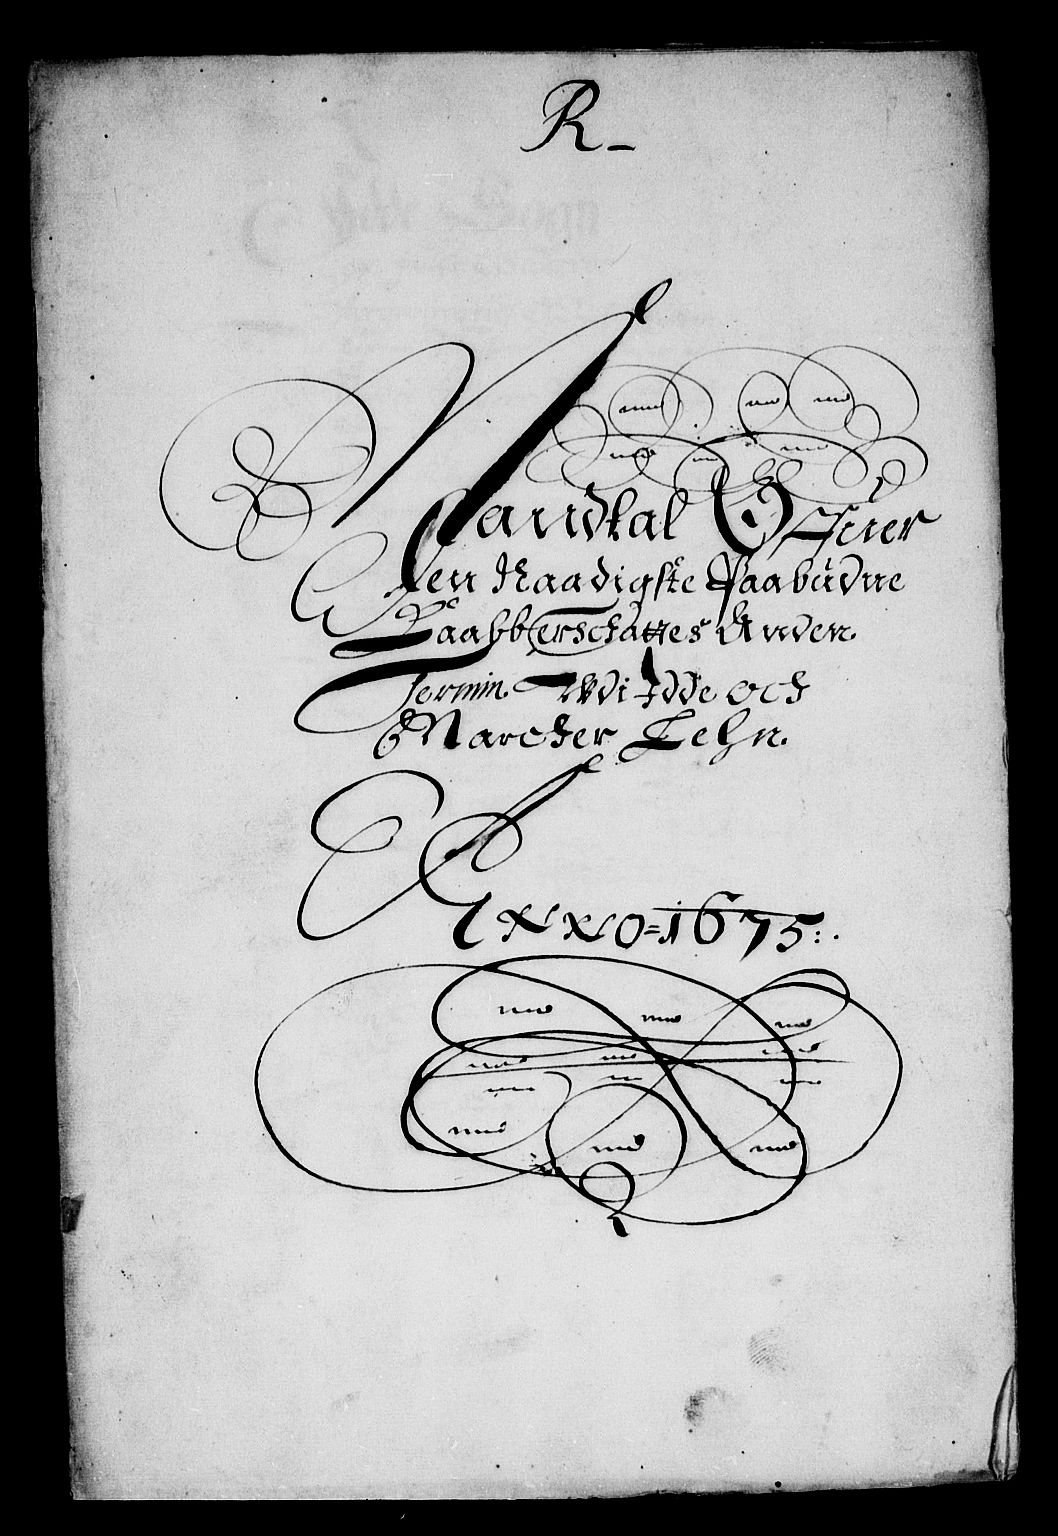 R-
Mandtal Offuer
den Naadigste Paabudne
Kaabberschattes Anden
Termin. Widde och
Marcker Lehn.
Anno = 1675:.